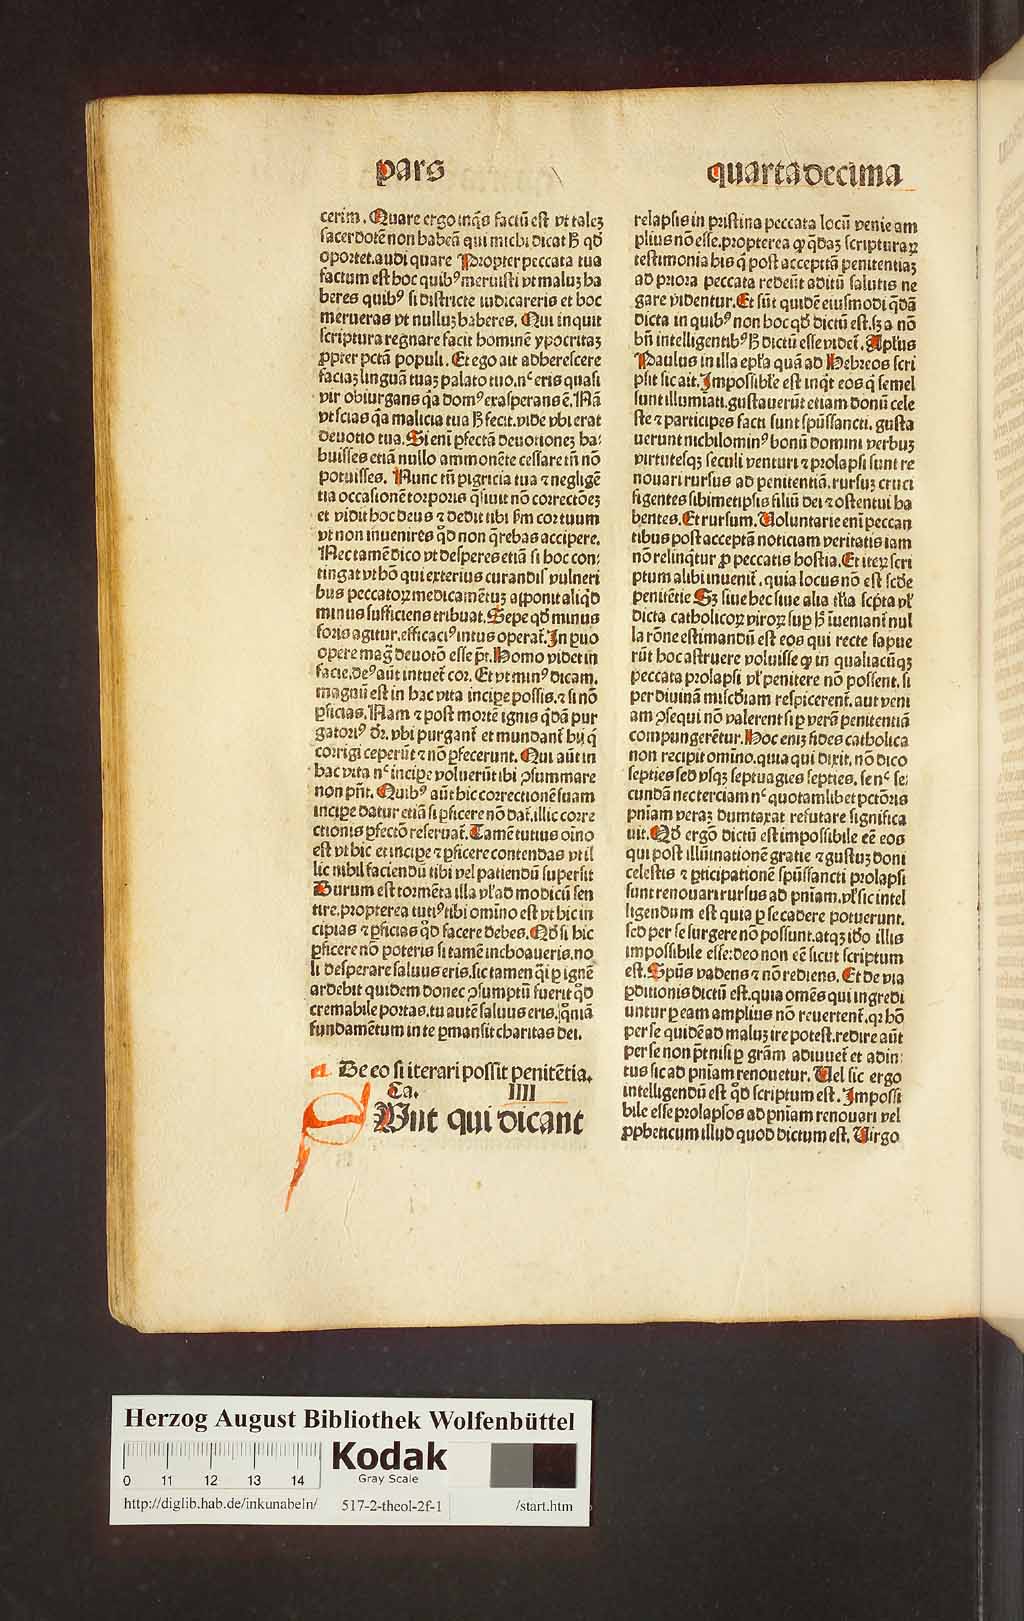 pars
quartadecima
cerim. Quare ergo inqͥs factū est vt talez
sacerdotē non habeā qui michi dicat ꝙ qd̄
oportet. audi quare Propter peccata tua
factum est hoc quibꝰ meruisti vt maluz ha
beres quibꝰ si districte iudicareris et hoc
merueras vt nulluz haberes. Qui inquit
scriptura regnare facit hominē ypocritaz
ꝓpter pctā populi. Et ego ait adherescere
faciaz linguā tuaz palato tuo. nᶜ eris quasi
vir obiurgans qͥa domꝰ exasperans ē. Nā
vt scias qͥa malicia tua ħ fecit. vide vbi erat
deuotio tua. Si eni ꝑfectā deuotionez ha-
buisses etiā nullo ammonēte cessare tn̄ nō
potuisses. Nunc tn̄ pigricia tua ⁊ negligē
tia occasionē torporis qͥsiuit nō correctōez
et vidit hoc deus ⁊ dedit tibi ẜm cor tuum
vt non inuenires qd̄ non qͥrebas accipere.
Nec tamē dico vt desperes etiā si hoc con-
tingat vt hō qui exterius curandis vulneri
bus peccatoꝝ medicamētuz apponit aliqͥd
minus sufficiens tribuat. Sepe qd̄ minus
foris agitur. efficaciꝰ intus operat̄. In quo
opere mag̃ deuotō esse pt̄. Homo videt in
facie. deꝰ aūt intuet̄ cor. Et vt minꝰ dicam.
magnū est in hac vita incipe possis. ⁊ si nō
ꝑficias. Nam ⁊ post mortē ignis qͥdā pur
gatoriꝰ dr̄. vbi purgant̄ et mundant̄ hij qͥ
corrigi ceperūt ⁊ nō ꝑfecerunt. Qui aūt in
hac vita nᶜ incipe voluerūt ibi ꝯsummare
non pn̄t. Quibꝰ aūt hic correctionē suam
incipe datur etiā si ꝑficere nō dat̄. illic corre
ctionis ꝑfectō reseruat̄. Tamē tutius oīno
est vt hic et incipe ⁊ ꝑficere contendas vt il
lic nihil faciendū tibi vel patiendū supersit
Durum est tormēta illa vl̓ ad modicū sen
tire. propterea tutiꝰ tibi omīno est vt hic in
cipias ⁊ ꝑficias qd̄ facere debes. Qd̄ si hic
ꝑficere nō poteris si tamē inchoaueris. no
li desperare saluus eris. sic tamen qͥi ꝑ ignē
ardebit quidem donec ꝯsumptū fuerit qd̄
cremabile portas. tu autē saluus eris. qm̄
fundamētum in te ꝑmansit charitas dei.
a De eo si iterari possit penitētia.
Ca. IIII
SUnt qui dicant
relapsis in pristina peccata locū venie am
plius nō esse. propterea ꝙ qͥdaz scripturaꝝ
testimonia his qͥ post acceptā penitentiaz
ad priora peccata redeūt aditū salutis ne
gare videntur. Et sūt quidē eiusmodi qͥdā
dicta in quibꝰ non hoc qd̄ dictū est. sz a nō
bn̄ intelligentibꝰ ħ dictū esse videt̄. Apl̓us
Paulus in illa epl̓a quā ad Hebreos scri
psit sic ait. Impossibile est inqͥt eos qͥ semel
sunt illumiati. gustauerūt etiam donū cele
ste ⁊ participes facti sunt spūssancti. gusta
uerunt nichilominꝰ bonū domini verbuz
virtutesqꝫ seculi venturi ⁊ prolapsi sunt re
nouari rursus ad penitentiā. rursuz cruci
figentes sibimetipsis filiū dei ⁊ ostentui ha
bentes. Et rursum. Voluntarie eni peccan
tibus post acceptā noticiam veritatis iam
nō relinqͥtur ꝓ peccatis hostia. Et iteꝝ scri
ptum alibi inuenit̄. quia locus nō est scd̄e
penitētie Sz siue hec siue alia tl̓ia scp̄ta vl̓
dicta catholicoꝝ viroꝝ suꝑ ħ iueniant̄ nul
la rōne estimandū est eos qui recte sapue
rūt hoc astruere voluisse ꝙ in qualiacūqꝫ
peccata prolapsi vl̓ penitere nō possent. si
per diuinā misc̄diam respicerent. aut veni
am ꝯsequi nō valerent si ꝑ verā penitentiā
compungerētur. Hoc eniz fides catholica
non recipit omīno. quia qui dixit. nō dico
septies sed vsqꝫ septuagies septies. se nᶜ se-
cundā nec terciam nᶜ quotamlibet pctōris
pniam veraz dumtaxat refutare significa
uit. Qd̄ ergo dictū est impossibile eē eos
qui post illūinationē gratie ⁊ gustuz doni
celestis ⁊ ꝑticipationē spūssancti prolapsi
sunt renouari rursus ad pniam. vl̓ sic intel
ligendum est quia ꝑ se cadere potuerunt.
sed per se surgere nō possunt. atqꝫ ido illis
impossibile esse: deo non eē sicut scriptum
est. Spūs vadens ⁊ nō rediens. Et de via
ꝑditionis dictū est. quia omēs qui ingredi
untur ꝑ eam amplius nō reuertent̄. qꝛ hō
per se quidē ad maluz ire potest. redire aūt
per se non pt̄ nisi ꝑ grām adiuuet̄ et adiu-
tus sic ad pniam renouetur. Vel sic ergo
intelligendū est qd̄ scriptum est. Impossi
bile esse prolapsos ad pniam renouari vel
ꝓpheticum illud quod dictum est. Virgo
Herzog August Bibliothek Wolfenbüttel
Kodak
Gray Scale
0 11 12 13 14
http://diglib.hab.de/inkunabeln/ 517-2-theol-2f-1 /start.htm